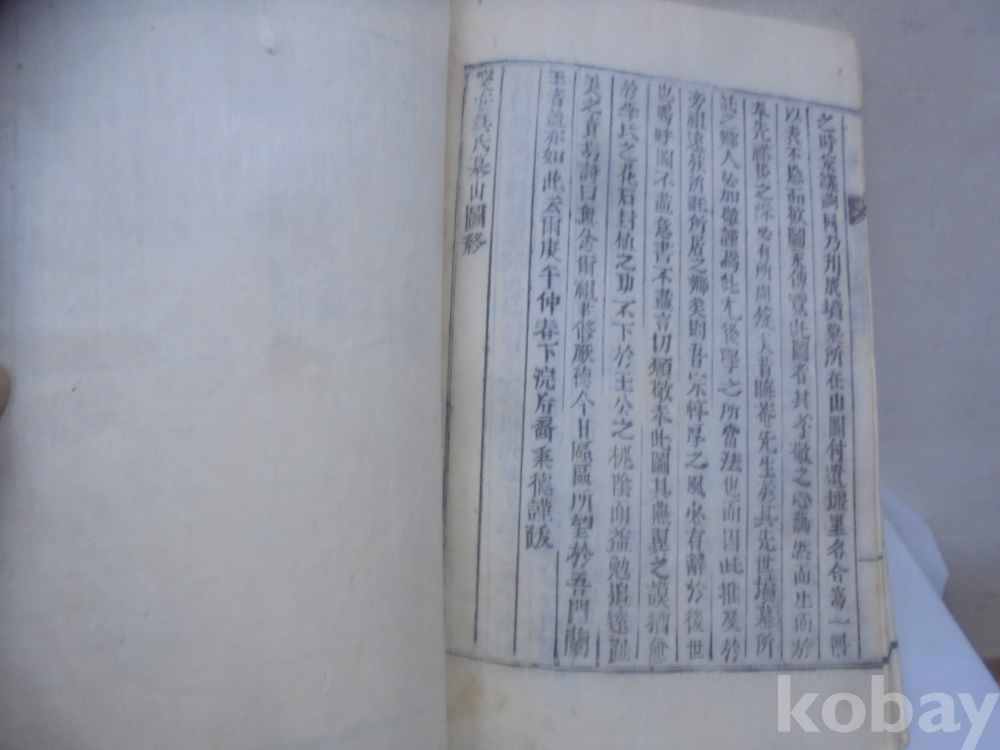 之時宗議詢同乃刋展墳墓所在山圖付遺墟里名合爲一冊
以表不 圖永傳覽此圖者其孝敬之心藹然而生而於
奉先 後之 必有所 昔晦菴先生於其先世墳墓所
託之鄉人必加敬謹焉此尤後學之所當法也而因此推及於
旁祖遠 所託所居之鄉矣則吾宗惇厚之風必有辭於後世
也嗚呼圖不盡意書不盡言切願敬奉此圖其燕翼之謨猶愈
於李氏之花石封植之功不下於王公之槐陰而益勉追遠趾
美之責 詩曰無念爾祖聿修厥德今日區區所望於吾門蘭
玉者盖亦如此云爾庚午仲春下浣后裔秉德謹跋
氏墓山圖終
kobay